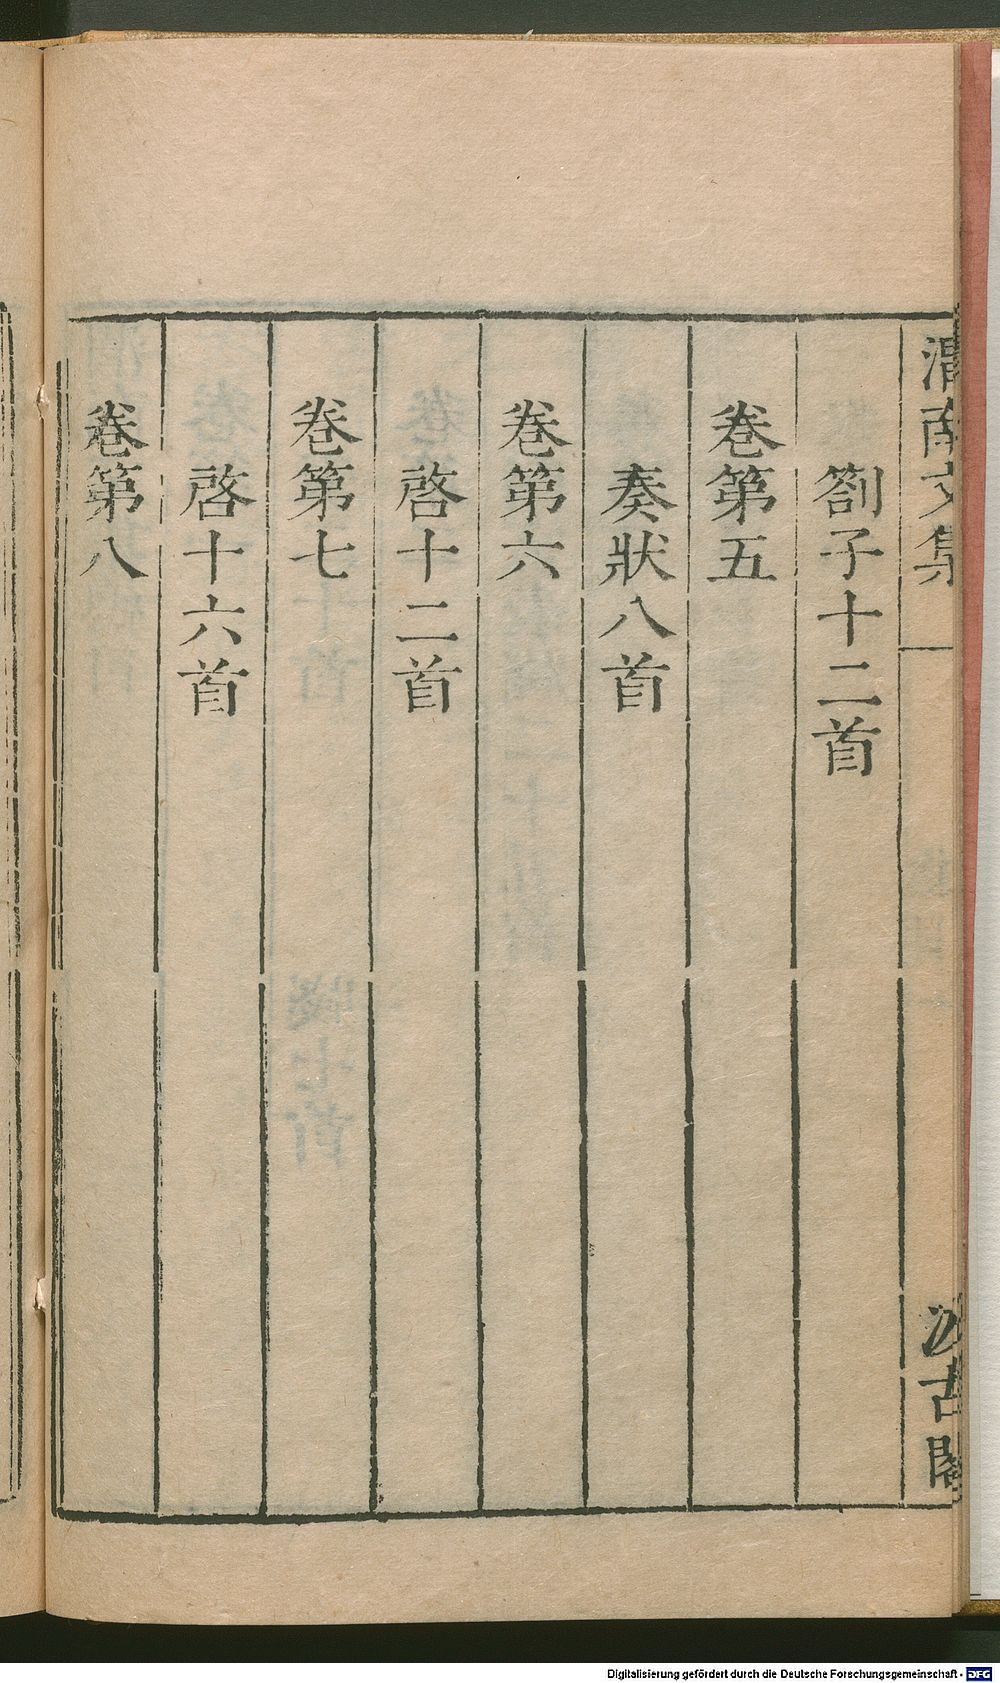 渭南文集
汲古閣
劄子十二首
卷第五
奏狀八首
卷第六
啓十二首
卷第七
啓十六首
卷第八
Digitalisierung gefördert durch die Deutsche Forschungsgemeinschaft - DFG